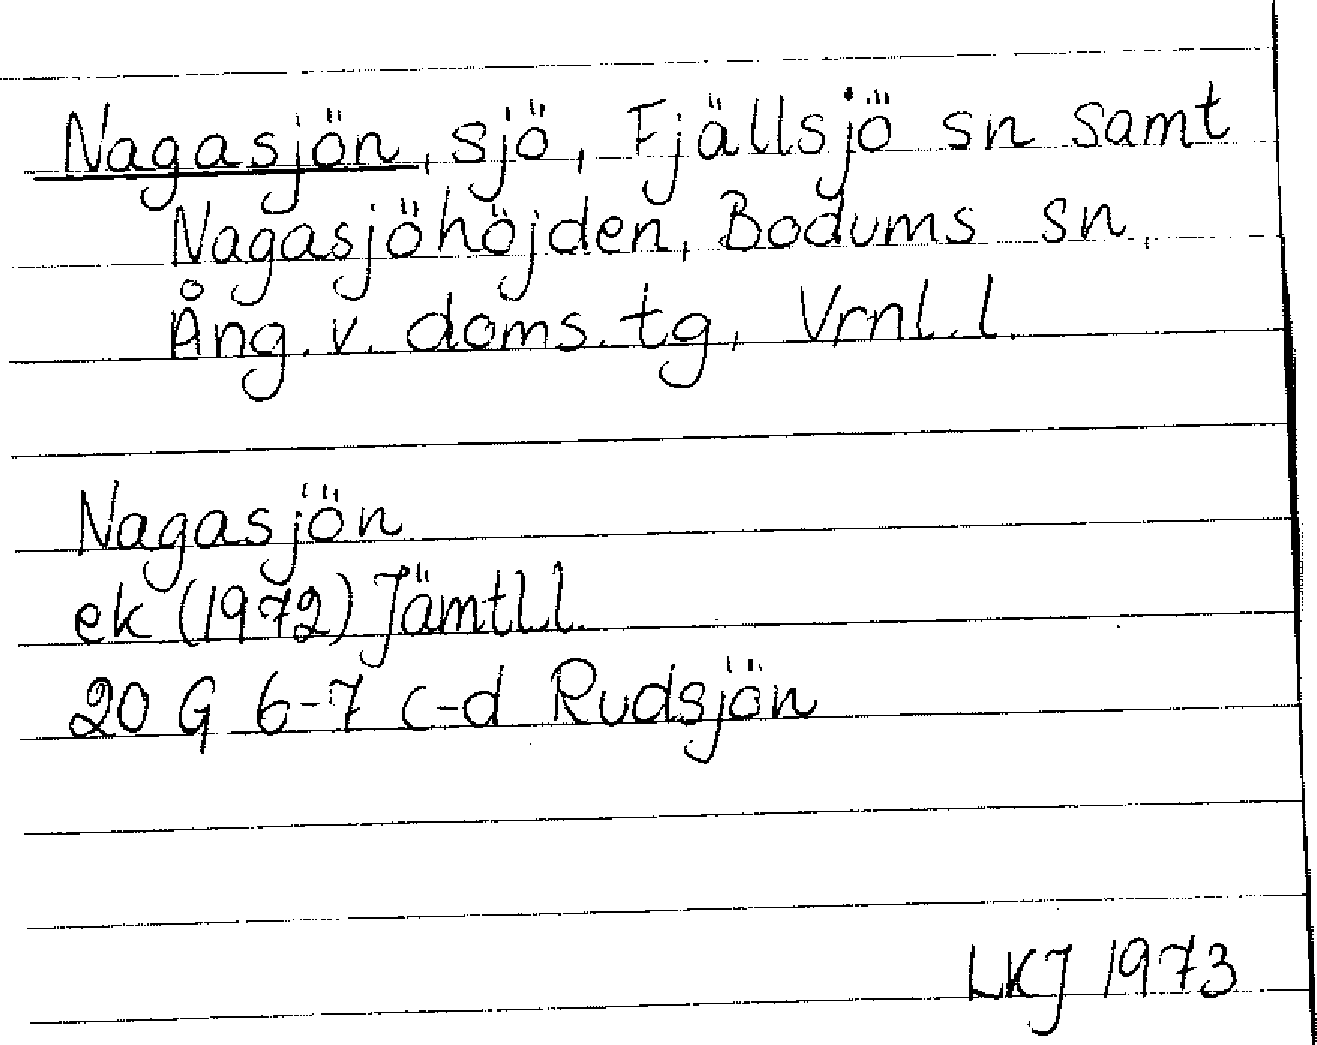 Nagasjön, sjö, Fjällsjö sn samt
Nagasjöhöjden, Bodums sn,
Ång. v. doms. tg, Vrnl. l.
Nagasjön
ek (1972) Jämtl.l.
20 G 6-7 c-d Rudsjön
LKJ 1973